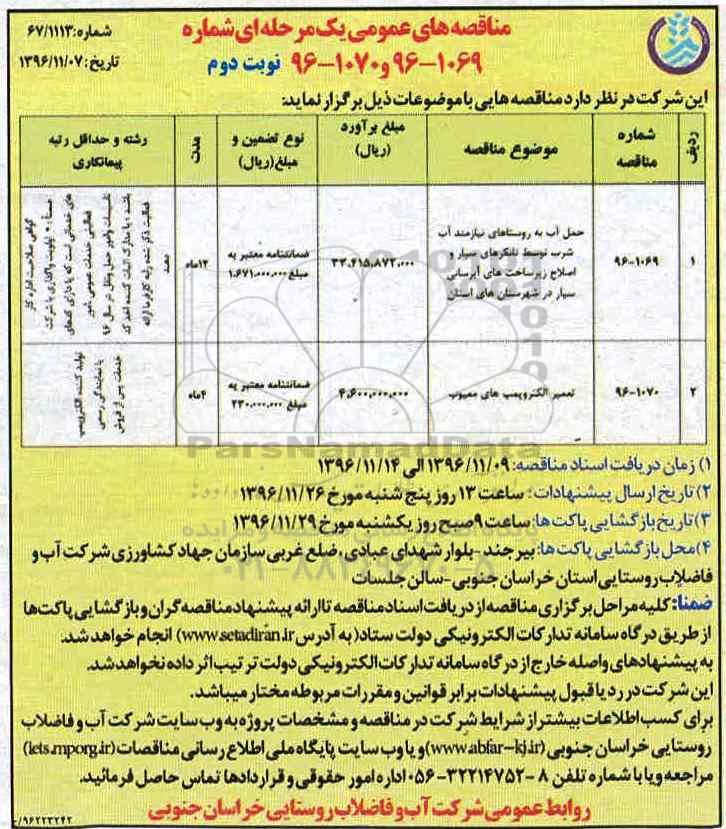 شماره: ۶۷/۱۱۱۳
تاریخ: ۱۳۹۶/۱۱/۰۷
مناقصه های عمومی یک مرحله ای شماره
۹۶-۱۰۶۹ و ۹۶-۱۰۷۰ نوبت دوم
این شرکت در نظر دارد مناقصه هایی با موضوعات ذیل برگزار نماید:
ردیف
شماره مناقصه
موضوع مناقصه
مبلغ برآورد (ریال)
نوع تضمین و مبلغ (ریال)
مدت
رشته و حداقل رتبه پیمانکاری
۱
۹۶-۱۰۶۹
حمل آب به روستاهای نیازمند آب
شرب توسط تانکرهای سیار و
اصلاح زیرساخت های آبرسانی
سیار در شهرستان های استان
۳۳,۴۱۵,۸۷۲,۰۰۰
ضمانتنامه معتبر به
مبلغ ۱,۶۷۱,۰۰۰,۰۰۰
۱۲ماه
۲
۹۶-۱۰۷۰
تعمیر الکتروپمپ های معیوب
۴,۶۰۰,۰۰۰,۰۰۰
ضمانتنامه معتبر به
مبلغ ۲۳۰,۰۰۰,۰۰۰
۴ماه
تولید کننده الکتروپمپ
یا نمایندگی رسمی
خدمات پس از فروش
ParsNamadData
۱) زمان دریافت اسناد مناقصه: ۱۳۹۶/۱۱/۰۹ الی ۱۳۹۶/۱۱/۱۴
۲) تاریخ ارسال پیشنهادات: ساعت ۱۳ روز پنج شنبه مورخ ۱۳۹۶/۱۱/۲۶
۳) تاریخ بازگشایی پاکت ها: ساعت ۹ صبح روز یکشنبه مورخ ۱۳۹۶/۱۱/۲۹
۴) محل بازگشایی پاکت ها: بیرجند - بلوار شهدای عبادی، ضلع غربی سازمان جهاد کشاورزی شرکت آب و
فاضلاب روستایی استان خراسان جنوبی - سالن جلسات
ضمنا: کلیه مراحل برگزاری مناقصه از دریافت اسناد مناقصه تا ارائه پیشنهاد مناقصه گران و بازگشایی پاکت ها
از طریق درگاه سامانه تدارکات الکترونیکی دولت ستاد (به آدرس www.setadiran.ir) انجام خواهد شد.
به پیشنهادهای واصله خارج از درگاه سامانه تدارکات الکترونیکی دولت ترتیب اثر داده نخواهد شد.
این شرکت در رد یا قبول پیشنهادات برابر قوانین و مقررات مربوطه مختار میباشد.
برای کسب اطلاعات بیشتر از شرایط شرکت در مناقصه و مشخصات پروژه به وب سایت شرکت آب و فاضلاب
روستایی خراسان جنوبی (www.abfar-kj.ir) و یا وب سایت پایگاه ملی اطلاع رسانی مناقصات (iets.mporg.ir)
مراجعه و یا با شماره تلفن ۸ - ۰۵۶-۳۲۲۱۴۷۵۲ اداره امور حقوقی و قراردادها تماس حاصل فرمائید.
روابط عمومی شرکت آب و فاضلاب روستایی خراسان جنوبی
۹۶۲۲۳۲۴۲/